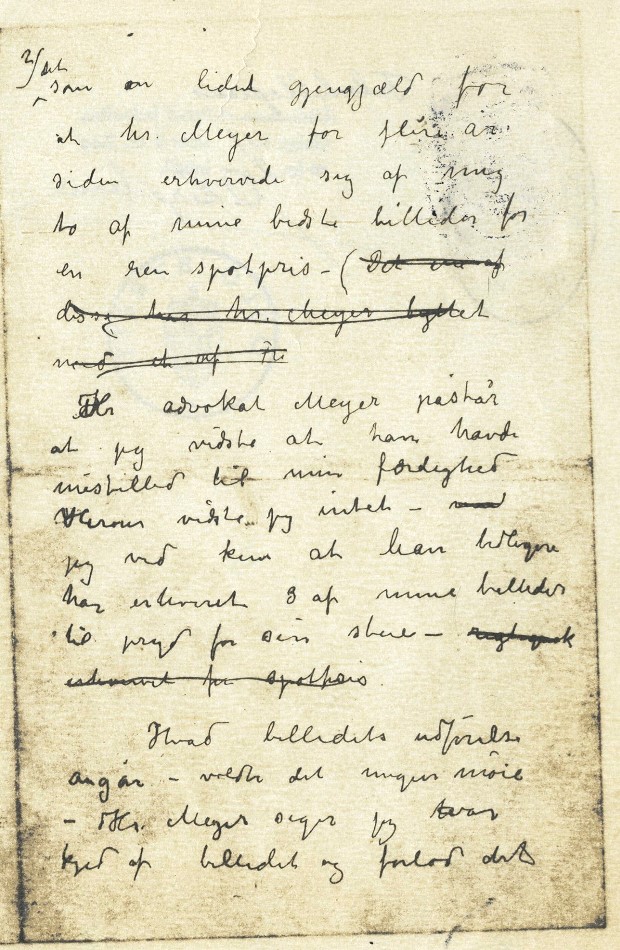 3/ det
som en lidet gjengjæld for
at hr. Meyer for flere år
siden erhvervede sig af mig
to af mine bedste billeder for
en ren spotpris – (Det ene af
disse har hr. Meyer byttet
med et af
Hr advokat Meyer påstår
at jeg vidste at han havde
mistillid til min færdighed
Herom vidste jeg intet –
jeg ved kun at han tidligere
har erhvervet 3 af mine billeder
til pryd for sin stue –
erhvervet for spotpris.
Hvad billedets udførelse
angår – voldte det megen møie
– Hr. Meyer siger jeg var
kjed af billedet og forlod det